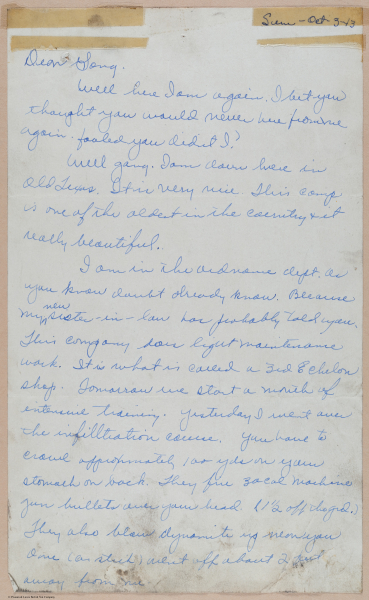 Sun - Oct 3-43
Dear Gang.
Well here I am again. I bet you
thought you would never hear from me
again. fooled you didn't I?
Well gang. I am down here in
Old Texas. It is very nice. This camp
is one of the oldest in the country & it
really beautiful.
I am in the ordnance dept. as
you know doubt already know. Because
new
my sister-in-law has probably told you.
This company does light maintenance
work. It is what is called a 3rd Echelon
shop. Tomorrow we start a month of
intensive training. Yesterday I went over
the infilltration course. You have to
crawl approximately 100 yds on your
stomach or back. They fire 30 cal machine
gun bullets over your head
They also blow dynamite up near you
One (as stick) went off about 2
away from me